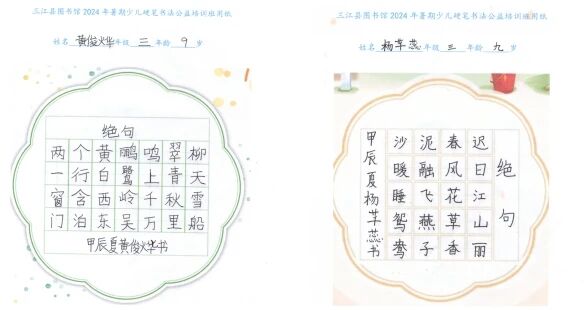 三江县图书馆 2024 年暑期少儿硬笔书法公益培训班用纸
姓名 黄俊烨 年级 三 年龄 9 岁
绝句
两个黄鹂鸣翠柳
一行白鹭上青天
窗含西岭千秋雪
门泊东吴万里船
甲辰夏黄俊烨书
三江县图书馆 2024 年暑期少儿硬笔书法公益培训班用纸
姓名 杨芊蕊 年级 三 年龄 九 岁
绝句
迟日江山丽
春风花草香
泥融飞燕子
沙暖睡鸳鸯
甲辰夏杨芊蕊书